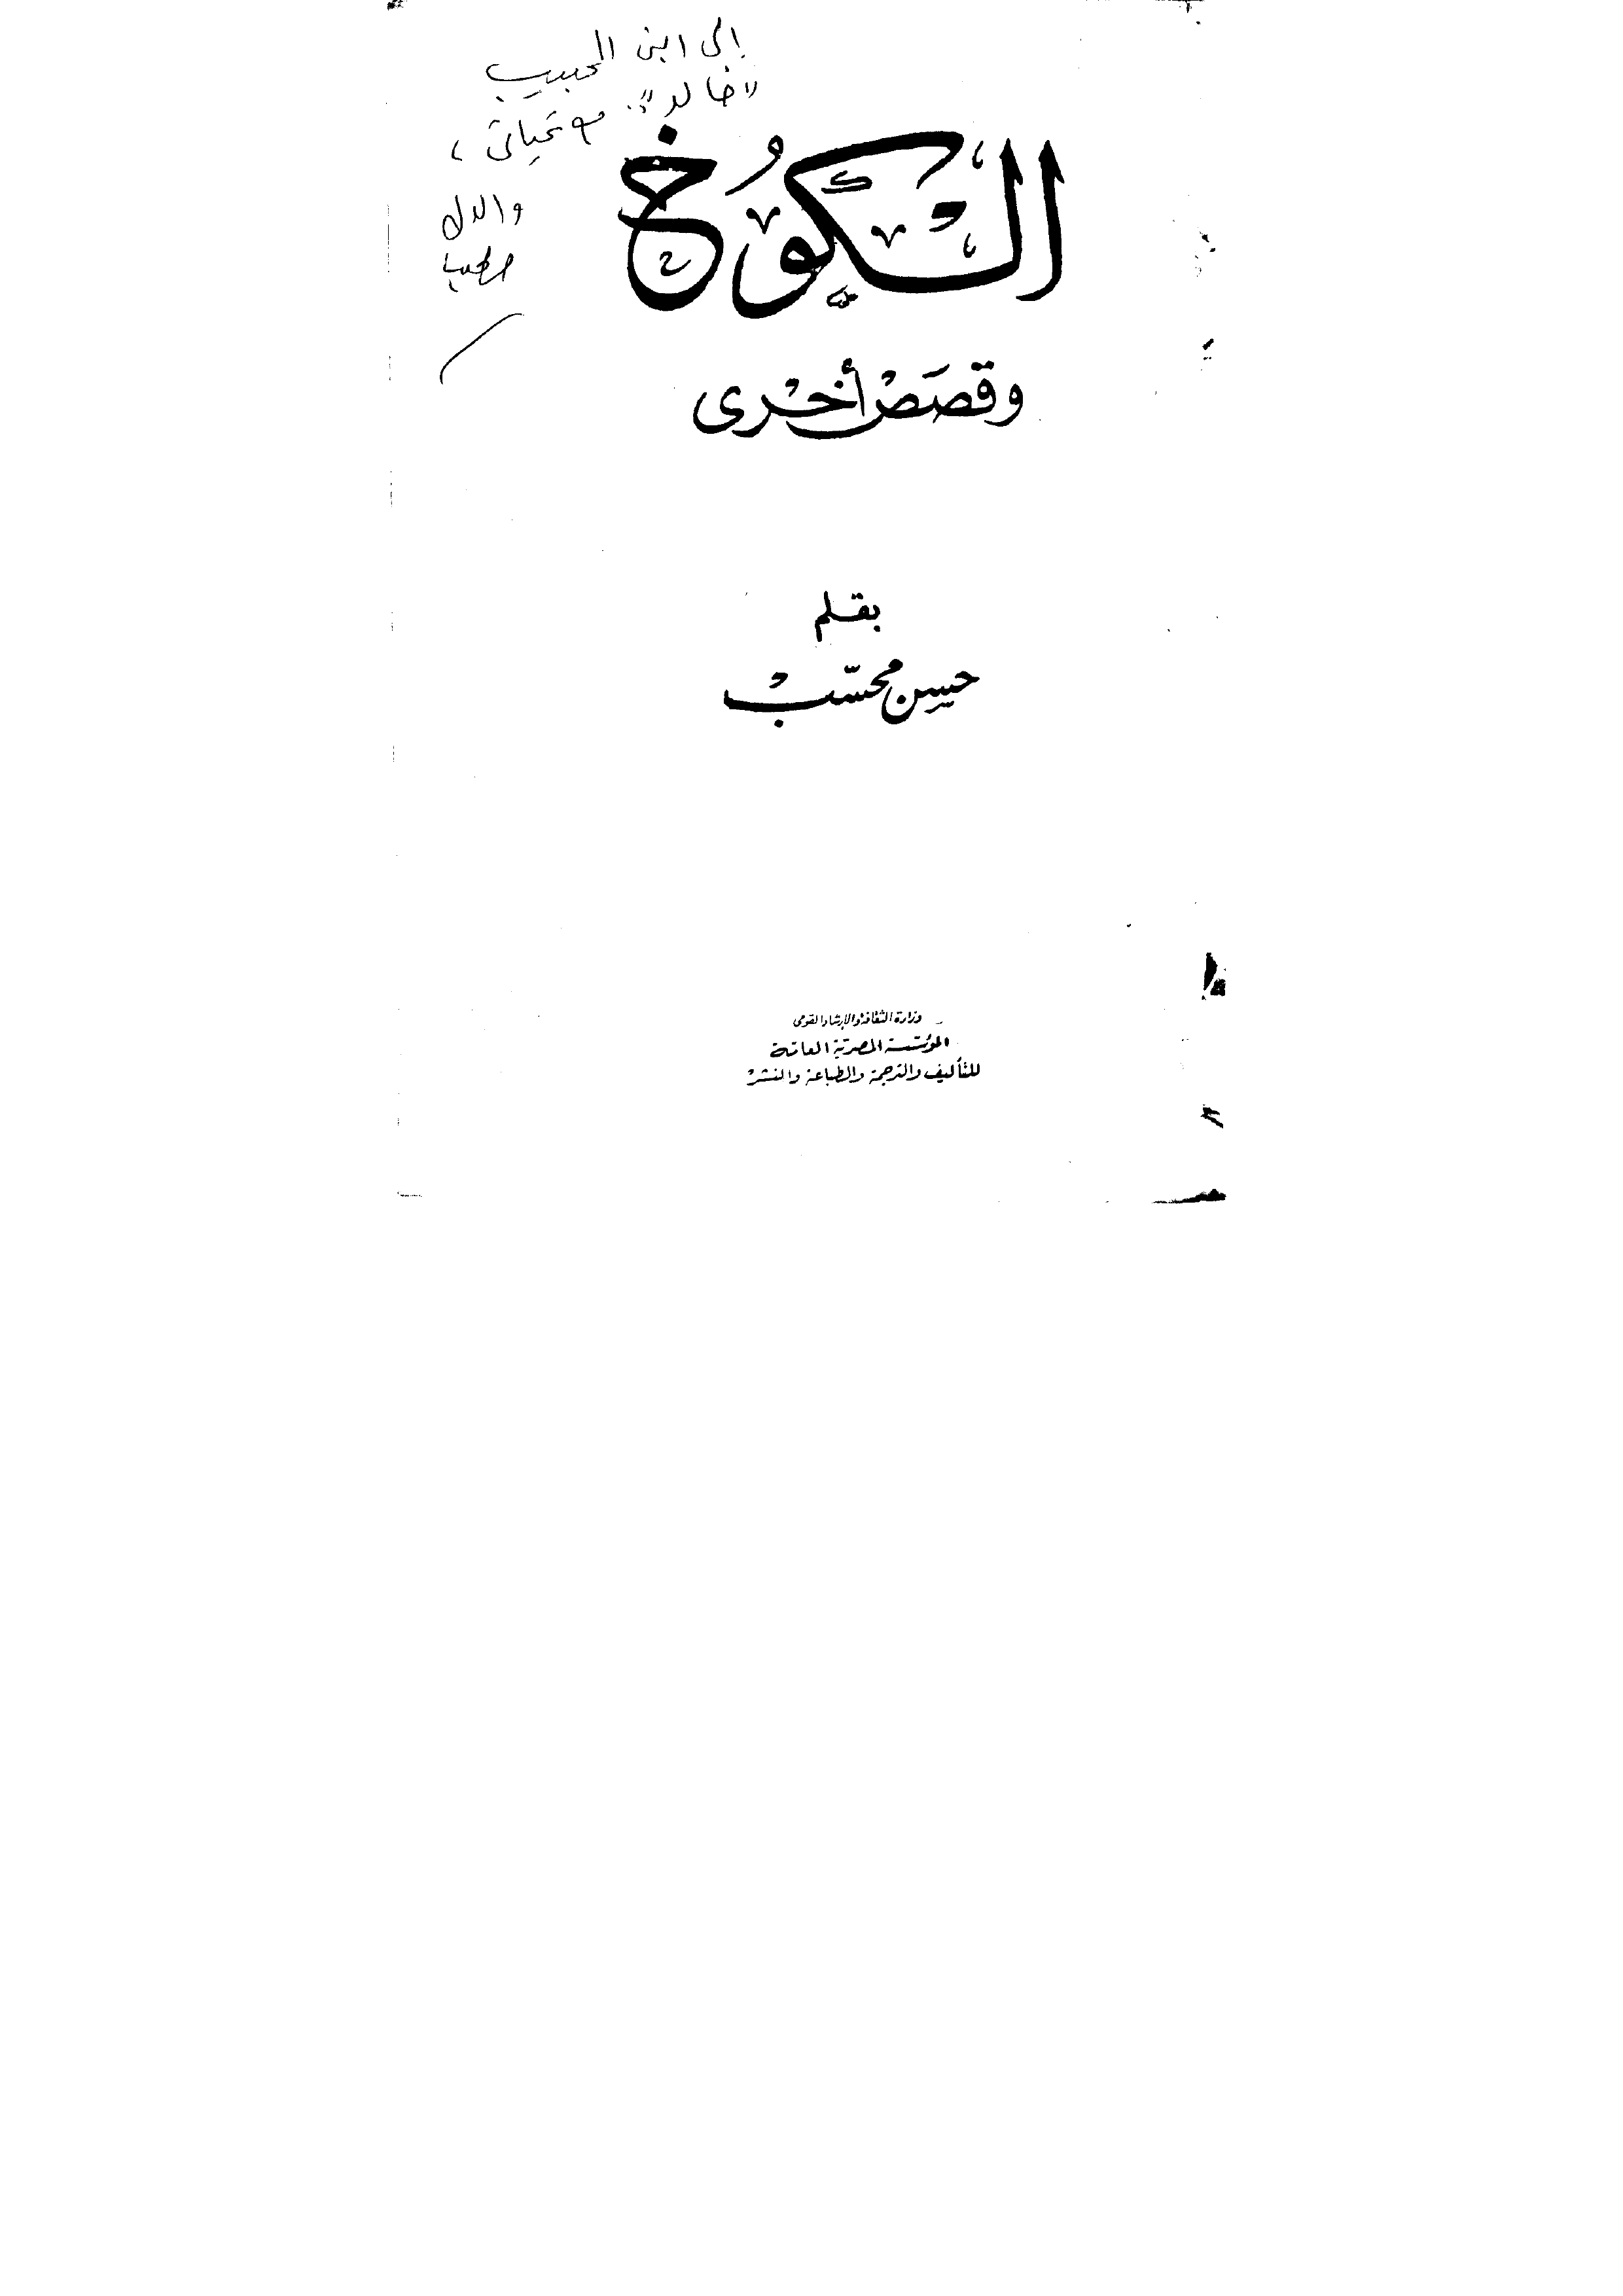 إلى ابنى الحبيب
"خالد" مع تحياتى،
والدك
الكُوخ
وقصَصْ أخْرى
بقلم
حسن محسّبْ
وزارة الثقافة والإرشاد القومى
المؤسسة المصرية العامة
للتأليف والترجمة والطباعة والنشر